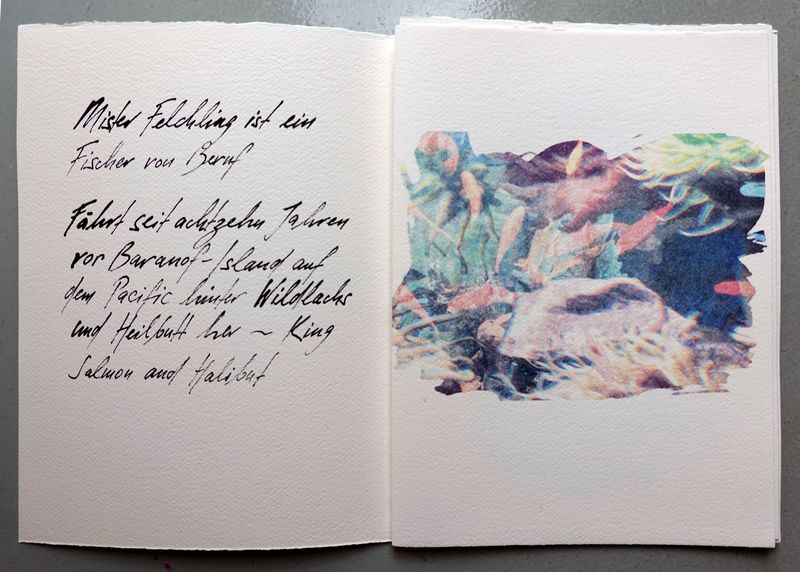 Mister Felchling ist ein
Fischer von Beruf
Fährt seit achtzehn Jahren
vor Baranof-Island auf
dem Pacific hinter Wildlachs
und Heilbutt her ~ King
Salmon and Halibut